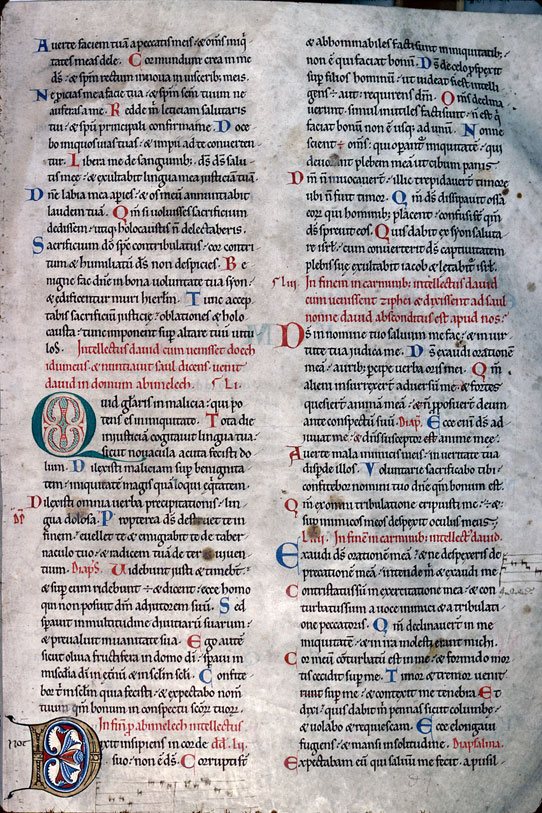 Auerte faciem tuā a peccatis meis / & om̄s iniq̇
tates meas dele. Cor mundum crea in me
ds̄ / & spm̄ rectum innoua in uiscerib; meis.
Ne ꝓicias me a facie tua / & spm̄ scm̄ tuum ne
auferas a me. Redde m̄ leticiam salutaris
tui / & spū principali confirma me. Doce
bo iniquos uias tuas / & impii ad te conuerten
tur. Libera me de sanguinib; ds̄ ds̄ salu
tis meę / & exultabit lingua mea iusticiā tuā.
Dnē labia mea apies / & os meū annuntiabit
laudem tuā. Qm̄ si uoluisses sacrificium
dedissem / utiq; holocaustis n̄ delectaberis.
Sacrificium dō sp̄c contribulatus / cor contri
tum & humiliatū ds̄ non despicies. Be
nigne fac dnē in bona uoluntate tua syon /
& edificentur muri hierlm̄. Tunc accep
tabis sacrificiū iusticię / oblationes & holo
causta / tunc imponent sup̄ altare tuū uitu
los. Intellectus dauid cum uenisset doech
idumeus / & nuntiauit saul dicens / uenit
dauid in domum abimelech. Ps̄ LI.
Quid glaris in malicia / qui po
tens es iniquitate. Tota die
iniusticiā cogitauit lingua tua /
sicut nouacula acuta fecisti do
lum. Dilexisti maliciam sup̄ benignita
tem / iniquitatē magis quā loqui eq̇tatem.
Dilexisti omnia uerba precipitationis / lin
gua dolosa. Propterea ds̄ destruet te in
finem / euellet te & emigrabit te de taber
naculo tuo / & radicem tuā de terra uiuen
tium. Diaps̄. Videbunt iusti & timebt̄ /
& sup̄ eum ridebunt ÷ & dicent / ecce homo
qui non posuit dm̄ adiutorem suū. Sed
sp̄auit in multitudine diuitiarū suarum /
& preualuit in uanitate sua. Ego autē
sicut oliua fructifera in domo dī / sp̄aui in
misc̄dia dī in et̄nū & in sclm̄ scli. Confite
bor t̄ in sclm̄ quia fecisti / & expectabo nom̄
tuum qm̄ bonum in conspectu scōr tuor.
In finē p abimelech intellectus
Dixit insipiens in corde dd̄. LII.
suo / non ē ds̄. Corrupti st̄
& abhominabiles facti sunt in iniquitatib; /
non ē qui faciat bonū. Ds̄ de celo ꝓspexit
sup̄ filios hominū / ut uideat si est intelli
gens ÷ aut requirens dm̄. Om̄s declina
uerunt / simul inutiles facti sunt / n̄ est q̇
faciat bonū non ē usq; ad unū. Nonne
scient ÷ om̄s / qui opant̄ iniquitatē / qui
deuorant plebem meā ut cibum panis
Dm̄ n̄ inuocauert̄ / illic trepidauert̄ timore
ubi n̄ fuit timor. Qm̄ ds̄ dissipauit ossa
eor qui hominib; placent / confusi st̄ qm̄
ds̄ spreuit eos. Quis dabit ex syon saluta
re isrl̄ / cum conuerterit ds̄ captiuitatem
plebis suę exultabit iacob & letabit̄ isrl̄.
Ps̄ LIII. In finem in carminib; intellectus dauid
cum uenissent ziphei & dixissent ad saul
nonne dauid absconditus est apud nos.
Ds̄ in nomine tuo saluum me fac / & in uir
tute tua iudica me. Ds̄ exaudi orationē
meā / aurib; pcipe uerba oris mei. Qm̄
alieni insurrexert̄ aduersū me / & fortes
quesiert̄ animā meā / & n̄ ꝓposuert̄ deum
ante conspectū suū. Diaps̄. Ecce eni ds̄ ad
iuuat me / & dn̄s susceptor est anime meę.
Auerte mala inimicis meis / in ueritate tua
disp̄de illos. Voluntarie sacrificabo tibi /
confitebor nomini tuo dnē qm̄ bonum est.
Qm̄ ex omni tribulatione eripuisti me ÷ &
sup̄ inimicos meos despexit oculus meus.
LIIII. In finē in carminib; intellect' dauid.
Exaudi ds̄ orationē meā / & ne despexeris de
precationē meā / intende m̄ & exaudi me
Contristatus sū in exercitatione mea / & con
turbatus sum a uoce inimici & a tribulati
one peccatoris. Qm̄ declinauert̄ in me
iniquitatē / & in ira molesti erant michi.
Cor meū cōturbatū est in me / & formido mor
tis cecidit sup̄ me. Timor & tremor uener̄
sup̄ me / & contexer̄ me tenebrę. Et
dixi / quis dabit m̄ pennas sicut columbe /
& uolabo & requiescam. Ecce elongaui
fugiens / & mansi in solitudine. Diapsalma.
Expectabam eū qui saluū me fecit / a pusil